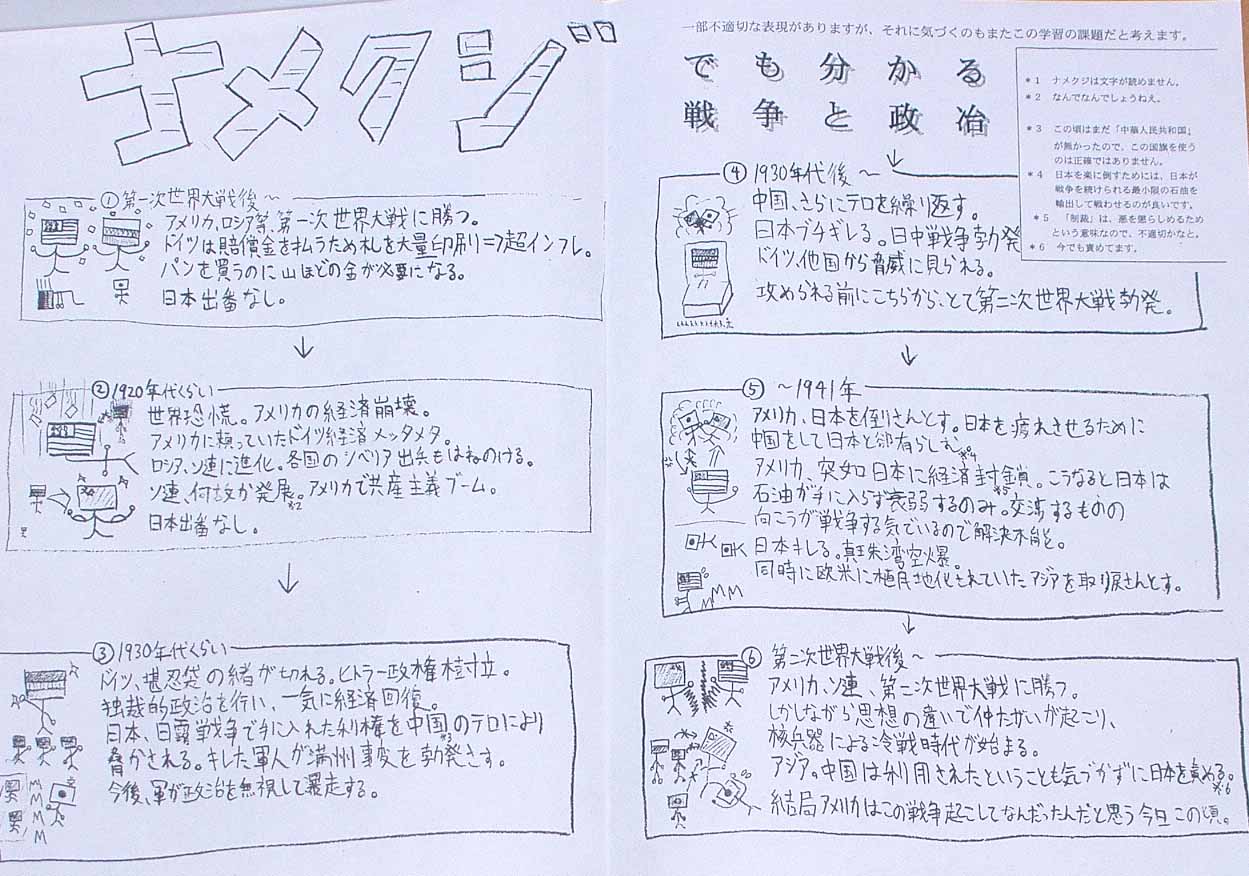 ナメクジ
①第一次世界大戦後～
アメリカ、ロシア等、第一次世界大戦に勝つ。
ドイツは賠償金を払うため札を大量印刷⇒超インフレ。
パンを買うのに山ほどの金が必要になる。
日本出番なし。
②1920年代くらい
世界恐慌。アメリカの経済崩壊。
アメリカに頼っていたドイツ経済メッタメタ。
ロシア、ソ連に進化。各国のシベリア出兵もはねのける。
ソ連、何故か発展。アメリカで共産主義ブーム。
*2
日本出番なし。
③1930年代くらい
ドイツ、堪忍袋の緒が切れる。ヒトラー政権樹立。
独裁的政治を行い、一気に経済回復。
日本、日露戦争で手に入れた利権を中国のテロにより
*3
脅かされる。キレた軍人が満州事変を勃発さす。
今後、軍が政治を無視して暴走する。
一部不適切な表現がありますが、それに気づくのもまたこの学習の課題だと考えます。
でも分かる
戦争と政治
*1 ナメクジは文字が読めません。
*2 なんでなんでしょうねえ。
*3 この頃はまだ「中華人民共和国」
が無かったので、この国旗を使う
のは正確ではありません。
*4 日本を楽に倒すためには、日本が
戦争を続けられる最小限の石油を
輸出して戦わせるのが良いです。
*5 「制裁」は、悪を懲らしめるため
という意味なので、不適切かなと。
*6 今でも責めてます。
④1930年代後～
中国、さらにテロを繰り返す。
日本ブチギレる。日中戦争勃発
ドイツ、他国から脅威に見られる。
攻められる前にこちらから、とて第二次世界大戦勃発。
⑤～1941年
アメリカ、日本を倒さんとす。日本を疲れさせるために
中国をして日本と戦わらしむ
*4
アメリカ、突如日本に経済封鎖。こうなると日本は
*5
石油が手に入らず衰弱するのみ。交渉するものの
向こうが戦争する気でいるので解決不能。
日本キレる。真珠湾空爆。
同時に欧米に植民地化されていたアジアを取り戻さんとす。
⑥第二次世界大戦後～
アメリカ、ソ連、第二次世界大戦に勝つ。
しかしながら思想の違いで仲たがいが起こり、
核兵器による冷戦時代が始まる。
アジア。中国は利用されたということも気づかずに日本を責める。
*6
結局アメリカはこの戦争起こしてなんだったんだと思う今日この頃。